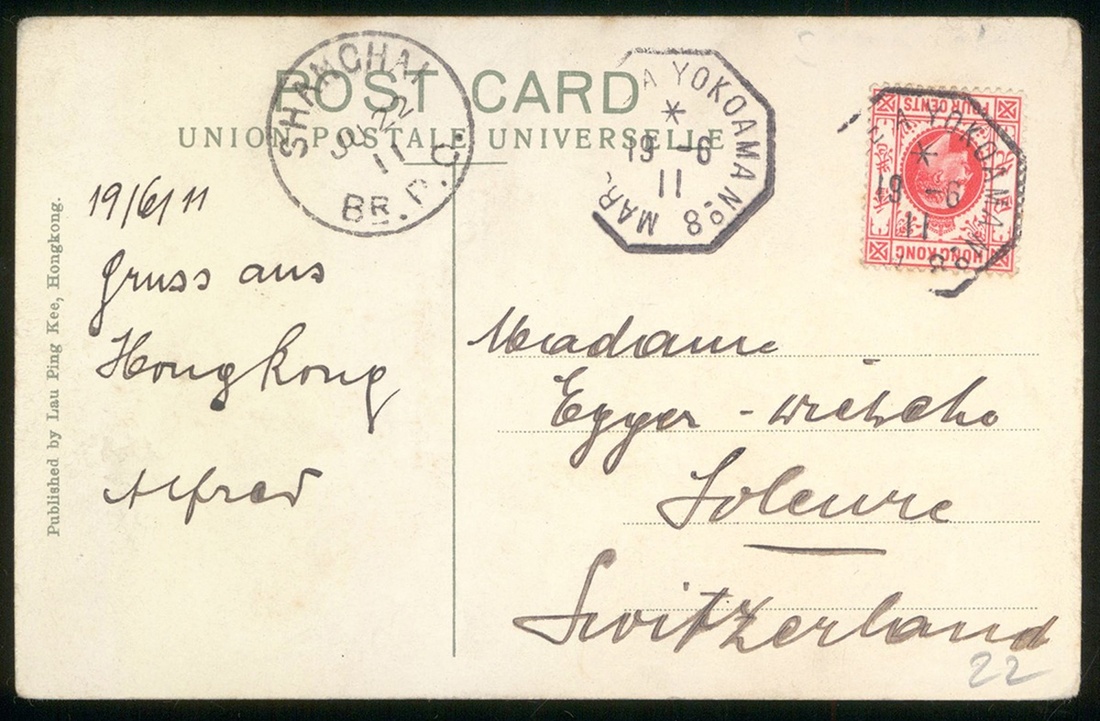 POST CARD
UNION POSTALE UNIVERSELLE
SHANGHAI
22
11
BR. P.O.
A YOKOAMA No 8 MAR
*
19 -6
11
FOUR CENTS
HONG KONG
A YOKOAMA No 8
*
19 -6
11
Published by Lau Ping Kee, Hongkong.
19/6/11
Gruss aus
Hongkong
Alfred
Madame
Egger -
Soleure
Switzerland
22